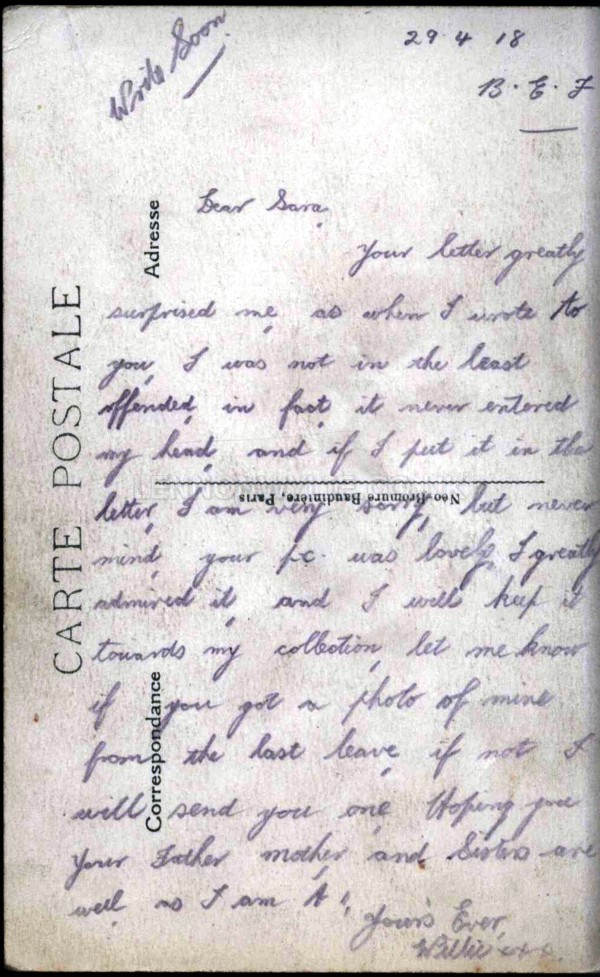 Write Soon
29 4 18
B. E. F
Dear Sara,
Your letter greatly
surprised me, as when I wrote to
you, I was not in the least
offended, in fact, it never entered
my head, and if I put it in the
letter, I am very sorry, but never
mind, your p.c. was lovely, I greatly
admired it, and I will keep it
towards my collection, let me know
if you got a photo of mine
from the last leave, if not I
will send you one, Hoping you
your Father mother, and Sisters are
well, as I am A1,
Yours Ever,
Willie xxx
CARTE POSTALE
Adresse
Correspondance
Néo-Bromure Baudinière, Paris